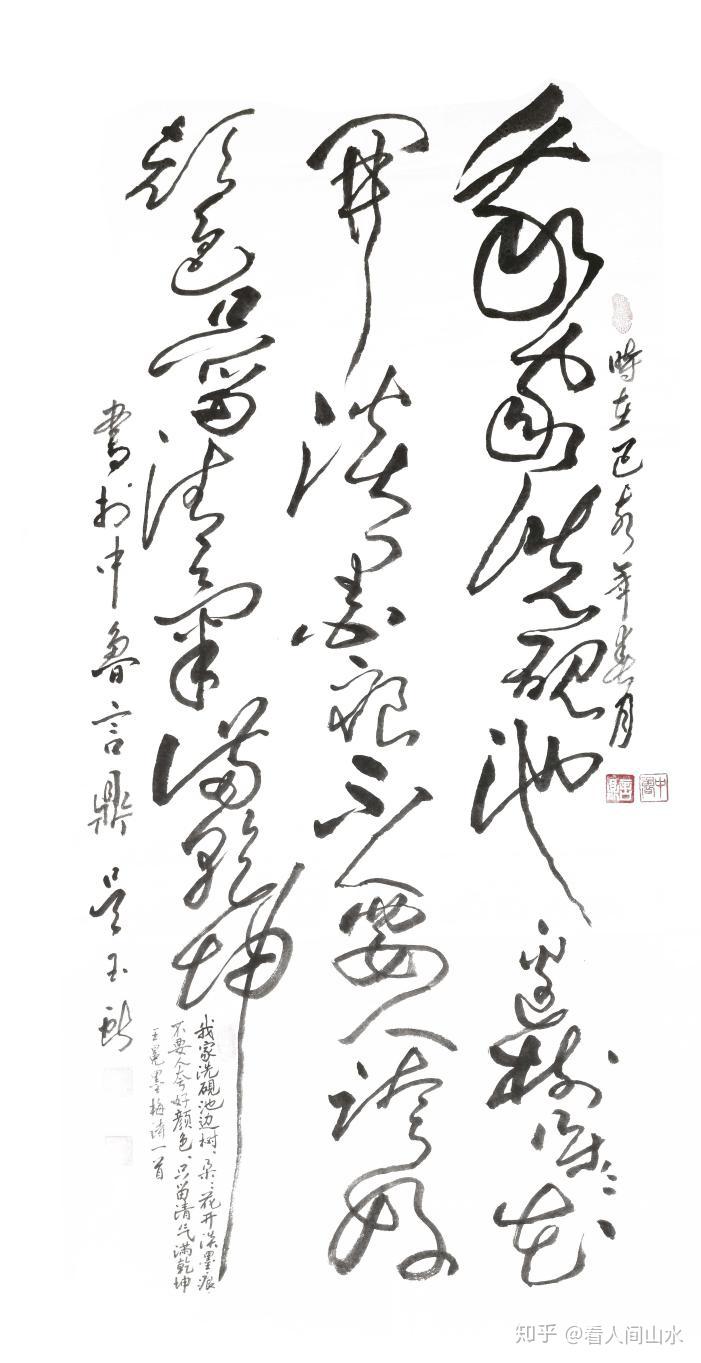 時在己亥年春月
我家洗硯池邊樹朵〻花
開淡墨痕不要人誇好
顏色只留清氣滿乾坤
我家洗砚池边树、朵〻花开淡墨痕
不要人夸好颜色、只留清气满乾坤
王冕墨梅诗一首
書於中魯言鼎 吴玉
知乎 @看人间山水